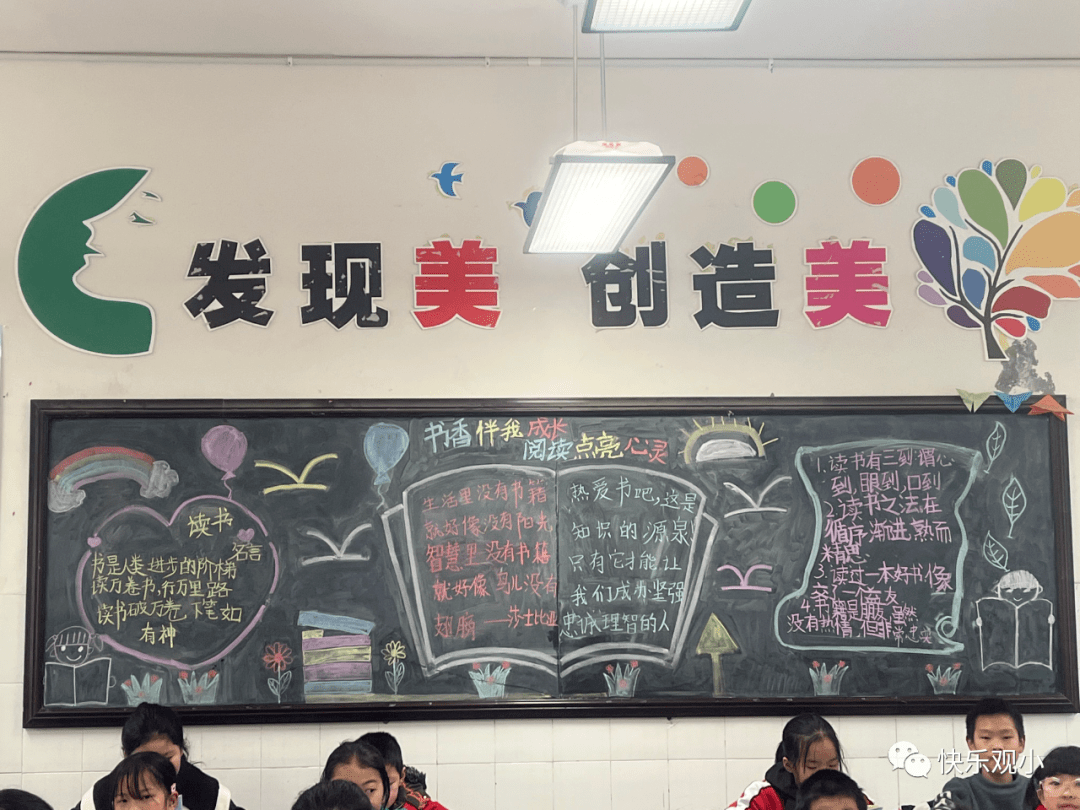 发现美 创造美
书香伴我成长
阅读点亮心灵
读书
名言
书是人类进步的阶梯
读万卷书,行万里路
读书破万卷,下笔如
有神
生活里没有书籍
就好像没有阳光
智慧里没有书籍
就好像鸟儿没有
翅膀——莎士比亚
热爱书吧,这是
知识的源泉
只有它才能让
我们成为坚强
忠诚理智的人
1.读书有三到谓心
到,眼到,口到
2.读书之法在
循序渐进,熟而
精思
3.读过一本好书像
交了一个益友
4.书籍是 虽然
没有热情,但非常忠实
快乐观小